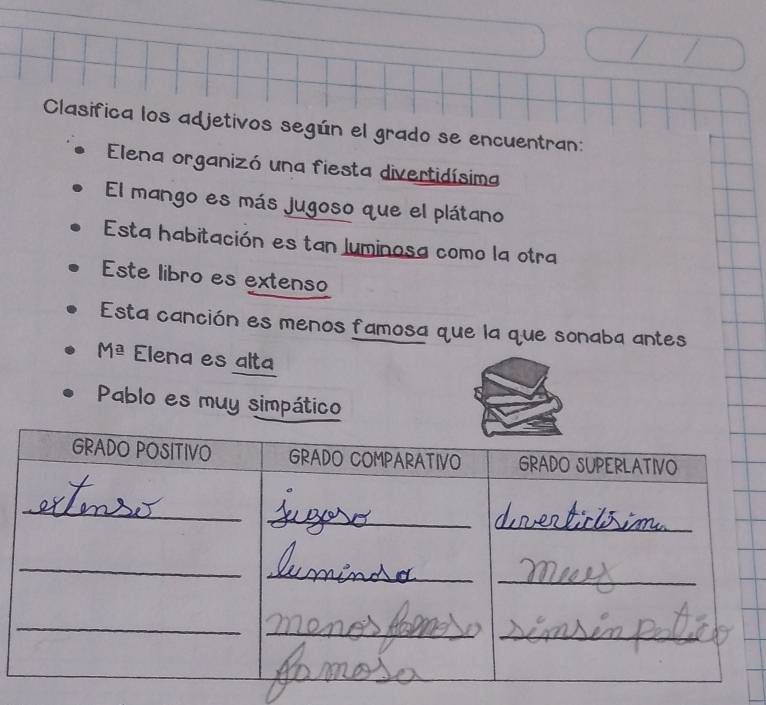 Clasifica los adjetivos según el grado se encuentran:
• Elena organizó una fiesta divertidísima
• El mango es más jugoso que el plátano
• Esta habitación es tan luminosa como la otra
• Este libro es extenso
• Esta canción es menos famosa que la que sonaba antes
• Mª Elena es alta
• Pablo es muy simpático
GRADO POSITIVO GRADO COMPARATIVO GRADO SUPERLATIVO
extenso jugoso
muy
menos famoso simsinpatico
famosa